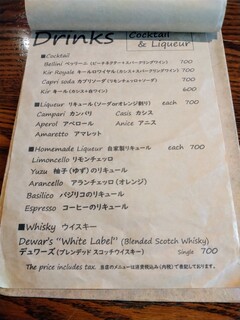 Drinks
Cocktail
& Liqueur
■Cocktail
Bellini ベッリーニ (ピーチネクター+スパークリングワイン) 700
Kir Royale キールロワイヤル (カシス+スパークリングワイン) 700
Capri soda カプリソーダ (リモンチェッロ+ソーダ) 700
Kir キール (カシス+白ワイン) 600
■Liqueur リキュール (ソーダorオレンジ割り) each 700
Campari カンパリ Casis カシス
Aperol アペロール Anice アニス
Amaretto アマレット
■Homemade Liqueur 自家製リキュール each 700
Limoncello リモンチェッロ
Yuzu 柚子 (ゆず) のリキュール
Arancello アランチェッロ (オレンジ)
Basilico バジリコのリキュール
Espresso コーヒーのリキュール
■Whisky ウイスキー
Dewar's "White Label" (Blended Scotch Whisky)
デュワーズ (ブレンデッド スコッチウイスキー) Single 700
The price includes tax. 当店のメニューは消費税込み(内税)で表記しております。